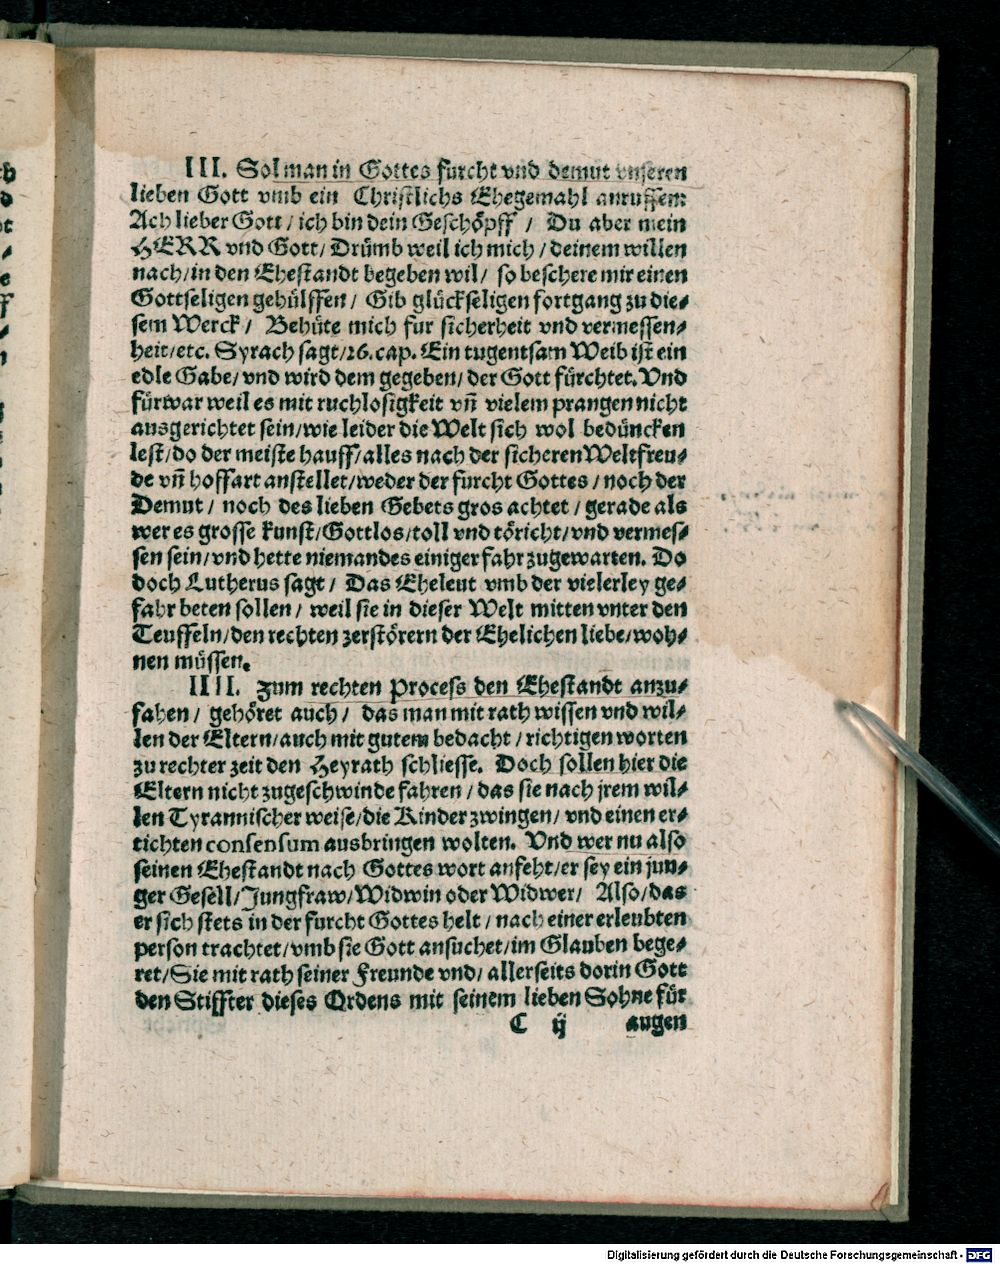 III. Sol man in Gottes furcht vnd demut vnseren
lieben Gott vmb ein Christlichs Ehegemahl anruffem
Ach lieber Gott / ich bin dein Geschöpff / Du aber mein
HERR vnd Gott / Drümb weil ich mich / deinem willen
nach / in den Ehestandt begeben wil / so beschere mir einen
Gottseligen gehülffen / Gib glückseligen fortgang zu die⸗
sem Werck / Behüte mich fur sicherheit vnd vermessen⸗
heit / etc. Syrach sagt / 26. cap. Ein tugentsam Weib ist ein
edle Gabe / vnd wird dem gegeben / der Gott fürchtet. Vnd
fürwar weil es mit ruchlosigkeit vñ vielem prangen nicht
ausgerichtet sein / wie leider die Welt sich wol bedüncken
lest / do der meiste hauff / alles nach der sicheren Weltfreu⸗
de vñ hoffart anstellet / weder der furcht Gottes / noch der
Demut / noch des lieben Gebets gros achtet / gerade als
wer es grosse kunst / Gottlos / toll vnd töricht / vnd vermes⸗
sen sein / vnd hette niemandes einiger fahr zugewarten. Do
doch Lutherus sagt / Das Eheleut vmb der vielerley ge⸗
fahr beten sollen / weil sie in dieser Welt mitten vnter den
Teuffeln / den rechten zerstörern der Ehelichen liebe / woh⸗
nen müssen.
IIII. Zum rechten Process den Ehestandt anzu⸗
fahen / gehöret auch / das man mit rath wissen vnd wil⸗
len der Eltern / auch mit gutem bedacht / richtigen worten
zu rechter zeit den Heyrath schliesse. Doch sollen hier die
Eltern nicht zugeschwinde fahren / das sie nach jrem wil⸗
len Tyrannischer weise / die Kinder zwingen / vnd einen er⸗
tichten consensum ausbringen wolten. Vnd wer nu also
seinen Ehestandt nach Gottes wort anfeht / er sey ein jun⸗
ger Gesell / Jungfraw / Widwin oder Widwer / Also / das
er sich stets in der furcht Gottes helt / nach einer erleubten
person trachtet / vmb sie Gott ansuchet / im Glauben bege⸗
ret / Sie mit rath seiner Freunde vnd / allerseits dorin Gott
den Stiffter dieses Ordens mit seinem lieben Sohne für
C ij augen
Digitalisierung gefördert durch die Deutsche Forschungsgemeinschaft - DFG